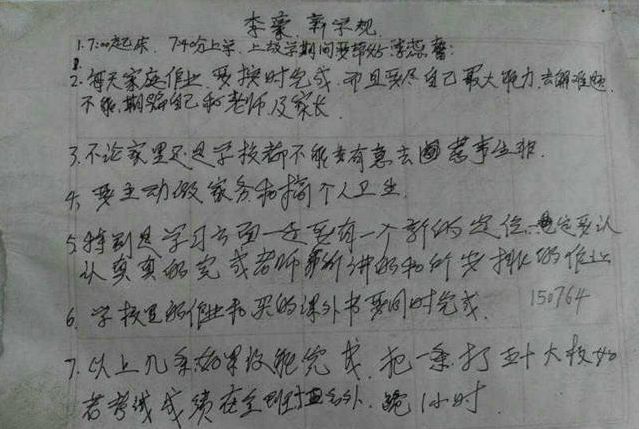 李豪 新学规
1. 7:00起床. 7:40分上学. 上放学期间要帮妈 李蕊馨:
2. 每天家庭作业 要按时完成. 而且要尽自己最大能力. 去解难题
不能期骗自己和老师及家长.
3. 不论家里还是学校都不能有意去 惹事生非.
4. 要主动做家务和搞个人卫生.
5. 特别是学习方面一定要有一个新的定位. 一定要认
认真真的完成老师所讲的和所安排的作业
6. 学校里的作业和买的课外书要同时完成. 150764
7. 以上几条如果没能完成. 把一条打五十大板如
若考试成绩在全班 名外. 跪1小时.